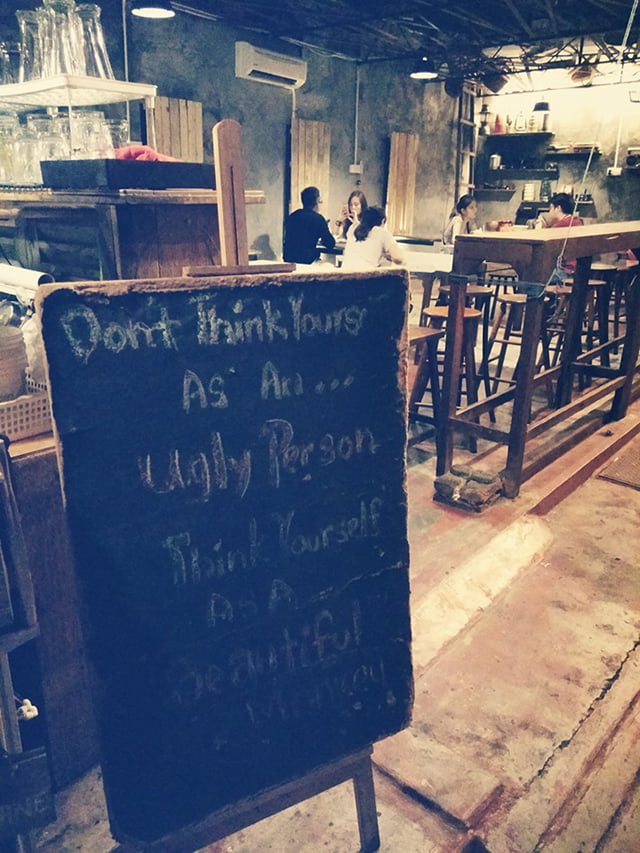 Don't Think Yours
As An...
Ugly Person
Think Yourself
As A
Beautiful
Monkey
INE